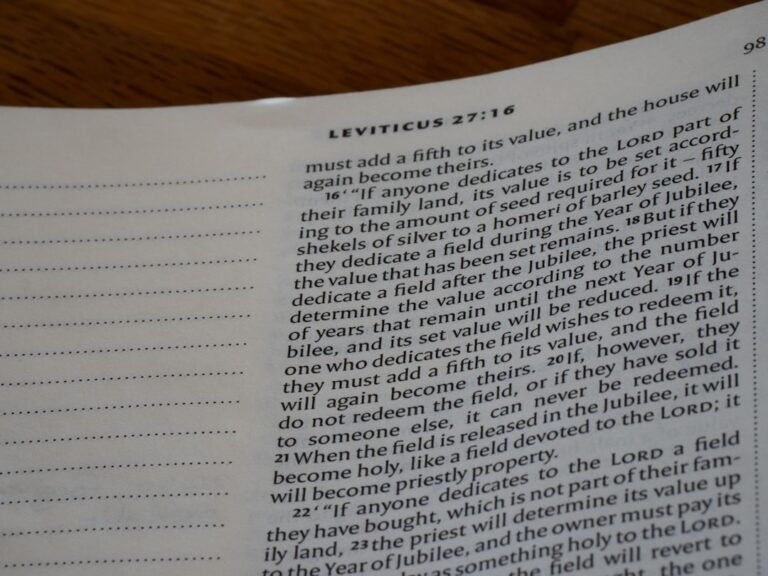 98
LEVITICUS 27:16
must add a fifth to its value, and the house will
again become theirs.
16 ‘ “If anyone dedicates to the LORD part of
their family land, its value is to be set accord-
ing to the amount of seed required for it – fifty
shekels of silver to a homer i of barley seed. 17 If
they dedicate a field during the Year of Jubilee,
the value that has been set remains. 18 But if they
dedicate a field after the Jubilee, the priest will
determine the value according to the number
of years that remain until the next Year of Ju-
bilee, and its set value will be reduced. 19 If the
one who dedicates the field wishes to redeem it,
they must add a fifth to its value, and the field
will again become theirs. 20 If, however, they
do not redeem the field, or if they have sold it
to someone else, it can never be redeemed.
21 When the field is released in the Jubilee, it will
become holy, like a field devoted to the LORD; it
will become priestly property.
22 ‘ “If anyone dedicates to the LORD a field
they have bought, which is not part of their fam-
ily land, 23 the priest will determine its value up
to the Year of Jubilee, and the owner must pay its
as something holy to the LORD.
the field will revert to
the one